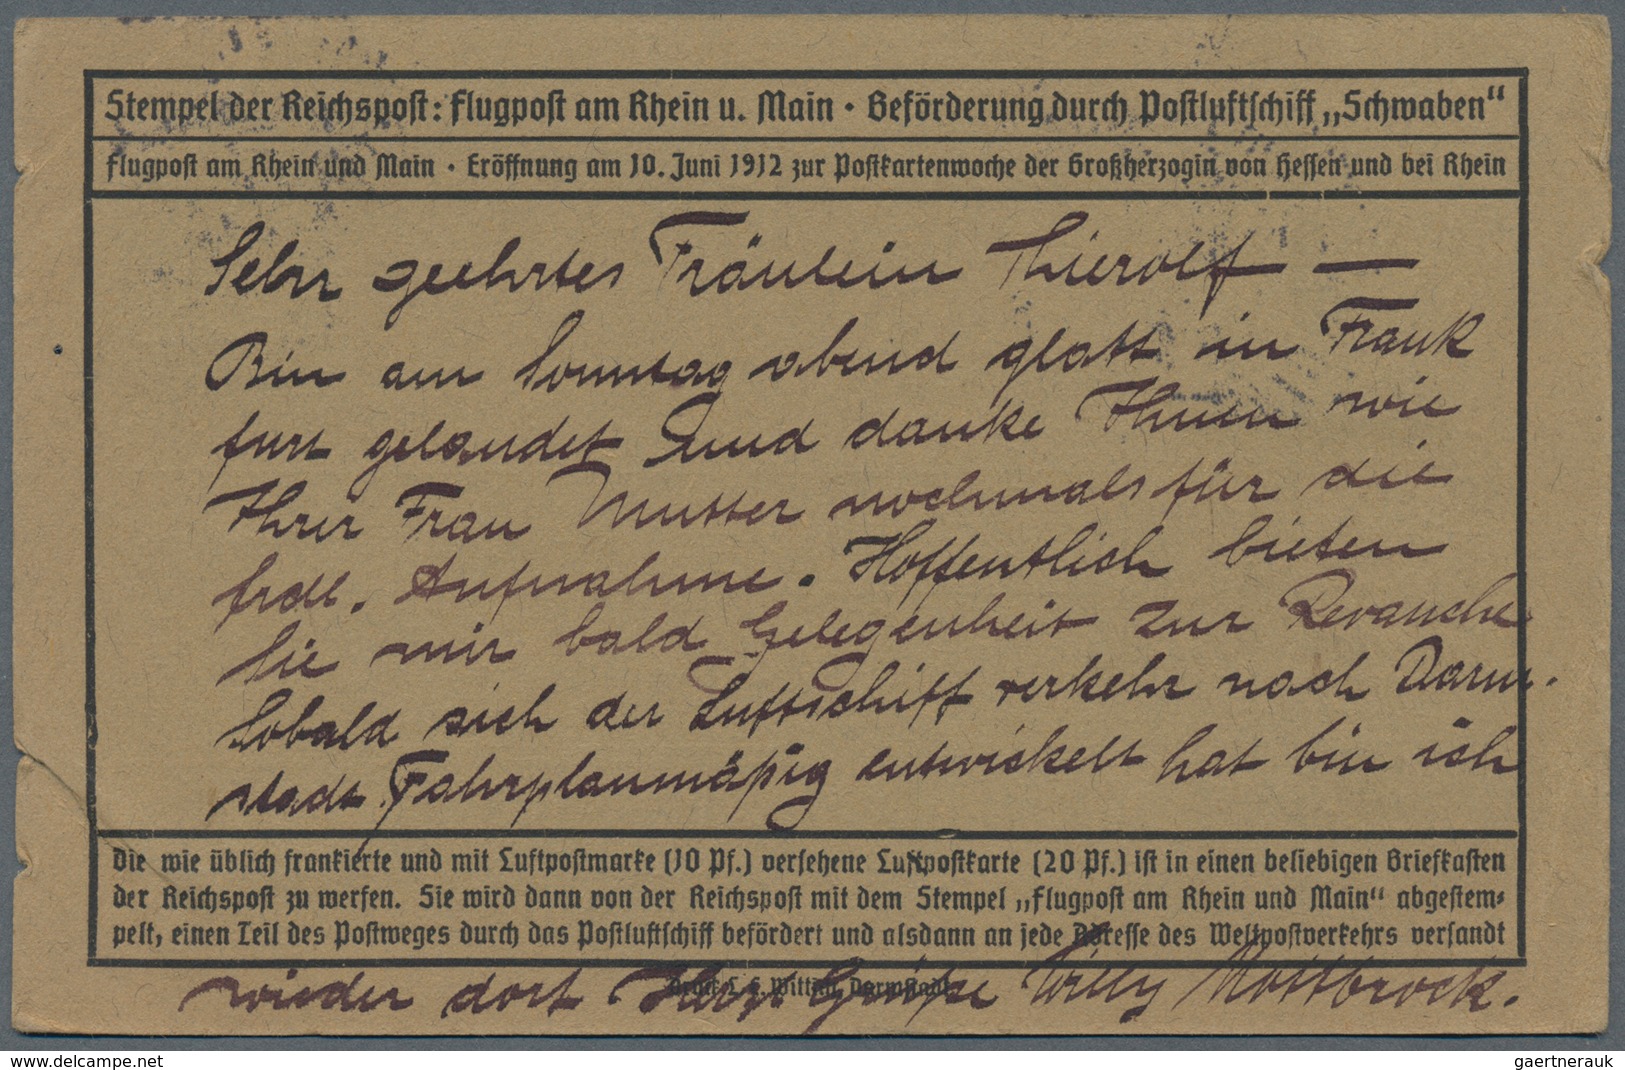 Stempel der Reichspost: Flugpost am Rhein u. Main · Beförderung durch Postluftschiff „Schwaben“
Flugpost am Rhein und Main · Eröffnung am 10. Juni 1912 zur Postkartenwoche der Großherzogin von Hessen und bei Rhein
Sehr geehrtes Fräulein Thierolf —
Bin am Sonntag abend glatt in Frank
furt gelandet und danke Ihnen wie
Ihrer Frau Mutter nochmals für die
frdl. Aufnahme. Hoffentlich bieten
Sie mir bald Gelegenheit zur Revanche
Sobald sich der Luftschiffverkehr nach Darm-
stadt Fahrplanmäßig entwickelt hat bin ich
Die wie üblich frankierte und mit Luftpostmarke (10 Pf.) versehene Luftpostkarte (20 Pf.) ist in einen beliebigen Briefkasten
der Reichspost zu werfen. Sie wird dann von der Reichspost mit dem Stempel „Flugpost am Rhein und Main“ abgestem-
pelt, einen Teil des Postweges durch das Postluftschiff befördert und alsdann an jede Adresse des Weltpostverkehrs versandt
wieder dort Herzl Grüße Willy
Wittich, Darmstadt
www.delcampe.net
gaertnerauk